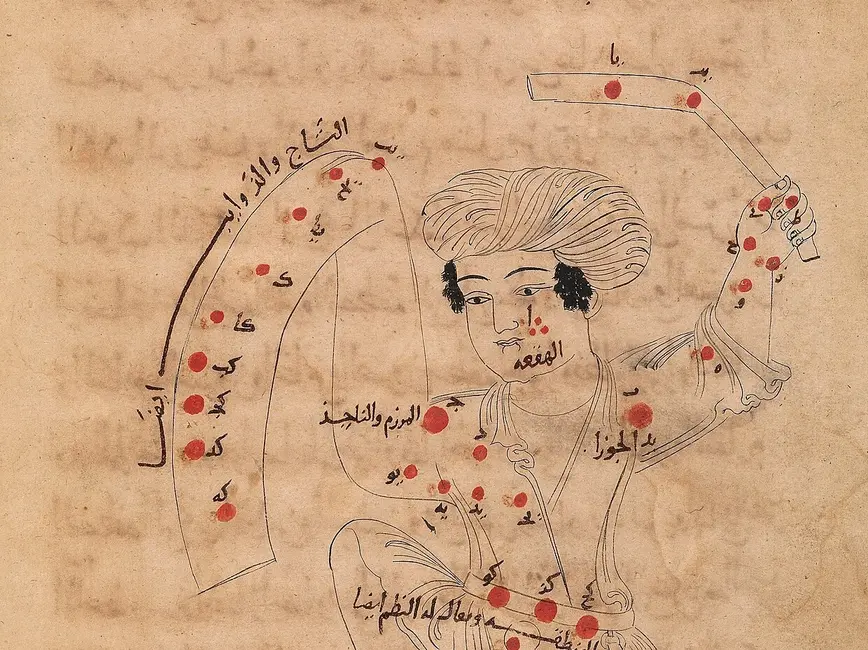 يا
يب
التاج والذوايب
يح
يط
ك
كا
ايضا
كد
كه
ط
ح
ز
و
ه
ا
الهقعه
ب
يد الجوزا
ج
المرزم والناجذ
د
يو
يه
يد
يج
كو
كز
كح
ويقال له النظم ايضا